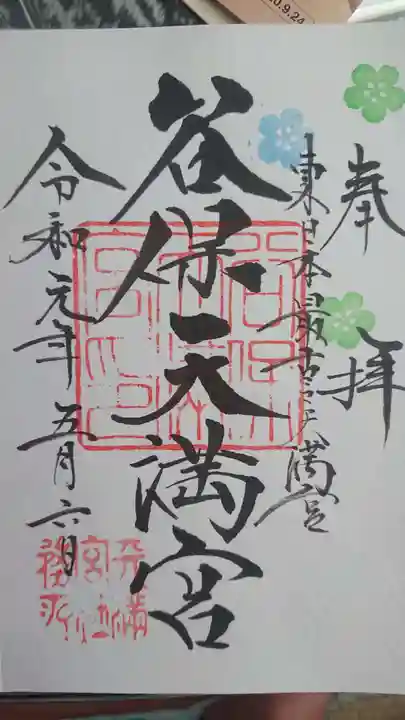 0.9.24
奉拝
東日本最古之天満宮
谷保天満宮
令和元年五月六日